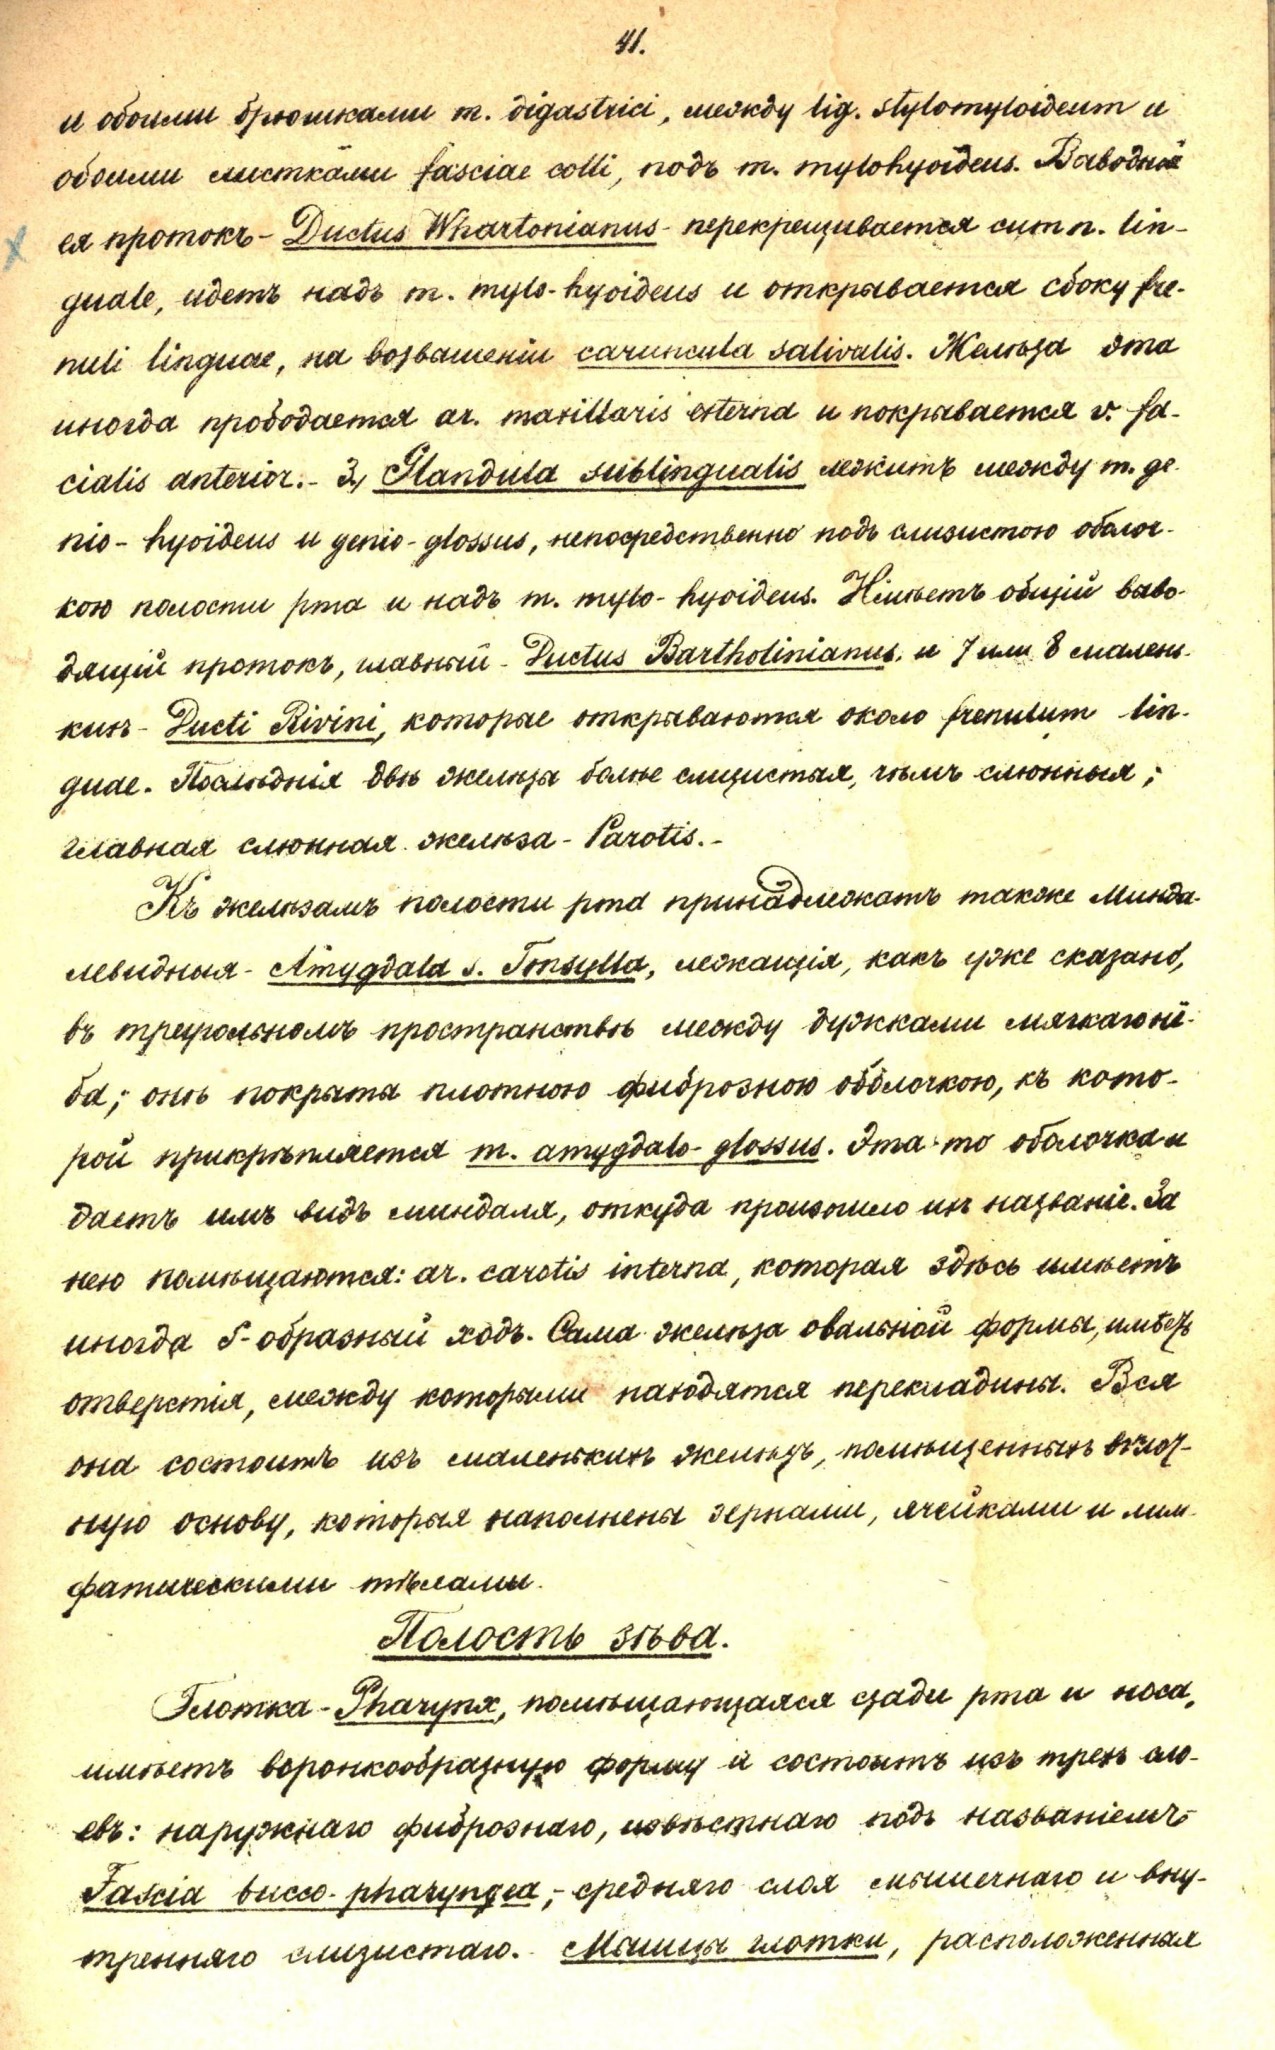 41.
и обоими брюшками m. digastrici, между lig. stylomyloideum и
обоими листками fasciae colli, подъ m. mylohyoideus. Выводной
ея протокъ - Ductus Whartonianus - перекрещивается съ m n. lin-
guale, идетъ надъ m. mylo-hyoideus и открывается сбоку fre-
nuli linguae, на возвышеніи caruncula salivalis. Желѣза эта
иногда прободается ar. maxillaris externa и покрывается v. fa-
cialis anterior. - 3, Glandula sublingualis лежитъ между m. ge-
nio-hyoideus и genio-glossus, непосредственно подъ слизистою оболоч-
кою полости рта и надъ m. mylo-hyoideus. Имѣетъ общій выво-
дящій протокъ, главный - Ductus Bartholinianus. и 7 или 8 малень-
кихъ - Ducti Rivini, которые открываются около frenulum lin-
guae. Послѣднія двѣ желѣзы болѣе слизистыя, чѣмъ слюнныя;
главная слюнная желѣза - Parotis. -
Къ желѣзамъ полости рта принадлежатъ также Минда-
левидныя - Amygdala s. Tonsylla, лежащія, какъ уже сказано,
въ треугольномъ пространствѣ между дужками мягкаго нё-
ба; онѣ покрыты плотною фиброзною оболочкою, къ кото-
рой прикрѣпляется m. amygdalo-glossus. Эта-то оболочка и
даетъ имъ видъ миндаля, откуда произошло ихъ названіе. За
нею помѣщаются: ar. carotis interna, которая здѣсь имѣетъ
иногда S-образный ходъ. Сама желѣза овальной формы, имѣетъ
отверстія, между которыми находятся перекладины. Вся
она состоитъ изъ маленькихъ желѣзъ, помѣщенныхъ въ
ную основу, которыя наполнены зернами, ячейками и лим-
фатическими тѣлами.
Полость зѣва.
Глотка - Pharynx, помѣщающаяся сзади рта и носа,
имѣетъ воронкообразную форму и состоитъ изъ трехъ сло-
евъ: наружнаго фибрознаго, извѣстнаго подъ названіемъ -
Fascia bucco-pharyngea, - средняго слоя мышечнаго и вну-
тренняго слизистаго. - Мышцы глотки, расположенныя